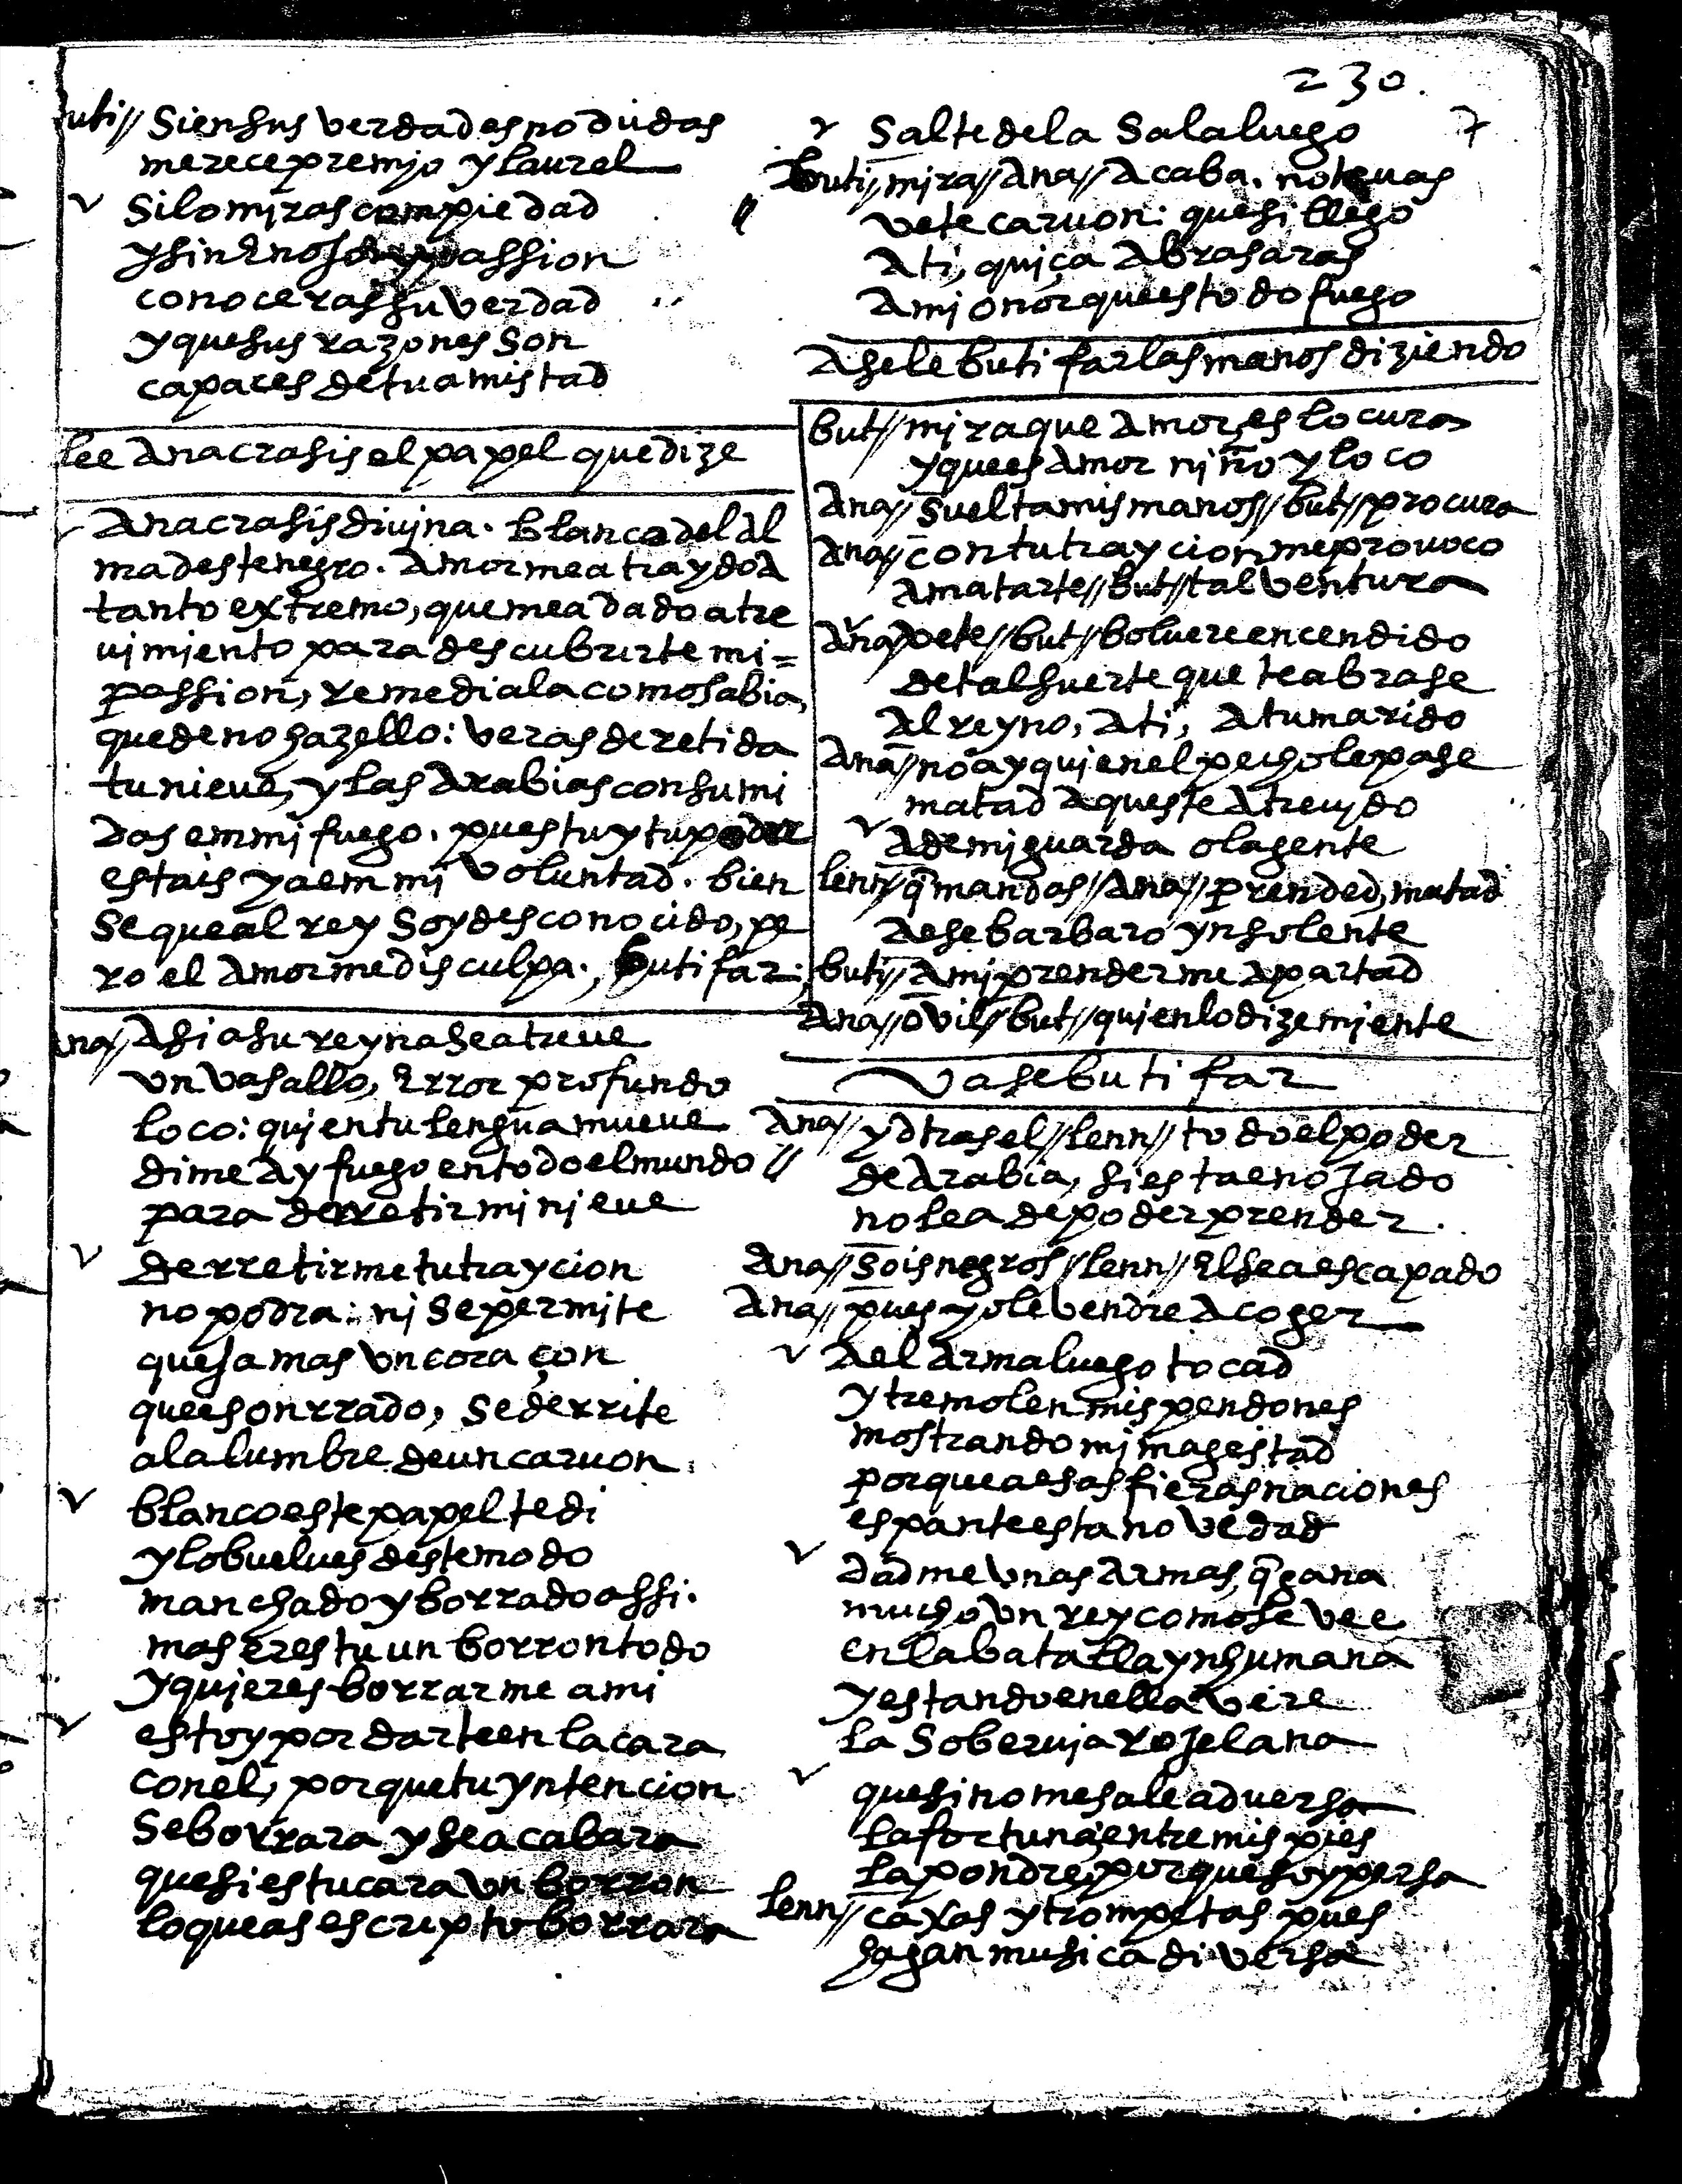 230.
7
buti// Si en sus verdades no dudas
merece premjo y laurel
Si lo miras com piedad
y sin enojo ny passion
conoceras su verdad
y que sus razones son
capaces de tu amistad
lee Anacrasis el papel que dize
Anacrasis diujna. blanca del Al
ma deste negro. Amor me a traydo A
tanto extremo, que me a dado atre
uimiento para descubrirte mi=
passion, remediala como sabia,
que de no hazello: veras deretida
tu nieue, y las Arabias consumi
das em mi fuego. pues tu y tu poder
estais ya em mi voluntad. bien
se que al rey soy desconocido, pe
ro el Amor me disculpa., butifar.
Ana// Asi a su reyna se atreue
un vasallo, Error profundo
loco: qujen tu lengua mueue
dime Ay fuego en todo el mundo
para derretir mi njeue
derretirme tu traycion
no podra: nj se permite
que jamas un coraçon
que es onrrado, se derrite
a la lumbre de un caruon.
blanco este papel te di
y lo buelues deste modo
manchado y borrado assi.
mas eres tu un borron todo
y qujeres borrarme a mi
estoy por darte en la cara
con el, porque tu yntencion
se borrara y se acabara
que si es tu cara un borron
lo que as escripto borrara
Salte de la Sala luego
buti// mira// Ana// Acaba. no te uas
vete caruon: que si llego
A ti, quiça Abrasaras
A mi onor que es todo fuego
Asele butifar las manos diziendo
but// mira que Amor, es locura
y que es Amor niño y loco
Ana// suelta mis manos// but// procura
Ana// con tu traycion me prouoco
A matarte// but// tal ventura
Ana// vete// but// boluere encendido
de tal suerte que te abrase
Al reyno, A ti, A tu marido
Ana// no ay quien el pecho le pase
matad Aqueste Atreuido
A de mi guarda ola gente
lenn// q̃ mandas// Ana// prended, matad
A ese barbaro ynsolente
buti// A mi prenderme apartad
Ana// o vil// but// quien lo dize miente
vase butifar
Ana// yd tras el// lenn// todo el poder
de Arabia, si esta enojado
no le a de poder prender.
Ana// sois negros// lenn// El se a escapado
Ana// pues yo le vendre A coger
A el Arma luego tocad
y tremolen mis pendones
mostrando mi magestad
porque a esas fieras naciones
espante esta novedad
dadme unas Armas, q̃ gana
mucho un rey como se vee
en la batalla ynhumana
y estando en ella vere
la soberuia rojelana
que si no me sale aduersa
la fortuna, entre mis pies
la pondre, porque soy persa
lenn// caxas y trompetas pues
hagan musica diversa